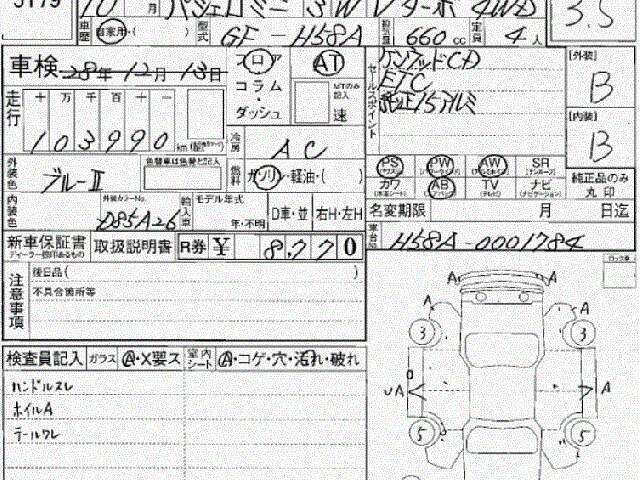 10 月 パジェロミニ 3W Vターボ 4WD 3.5
車歴 自家用・( ) 型式 GF-H58A 660cc 定員 4人
車検 28年12月13日 フロア AT
コラム・ダッシュ MTのみ記入 速
セールスポイント ケンウッドCD
ETC
純正15アルミ
[外装] B
[内装] B
走行 十 万 千 百 十 一
103990 km
冷房 AC
外装色 ブルーII 色替車は色替と記入 燃料 ガソリン・軽油・( )
PS PW AW SR
カワ AB TV ナビ
純正品のみ丸印
内装色 外装カラーNo. D85A26 輸入車 モデル年式 年・不明 D車・並 右H・左H
名変期限 月 日迄
新車保証書 取扱説明書 R券 ¥ 8,770
車台No. H58A-0001784
注意事項 後日品( )
不具合箇所等
検査員記入 ガラス A・X要ス 室内シート A・コゲ・穴・汚れ・破れ
ハンドルスレ
ホイルA
テールワレ
A A
A A
3 3
A A
5 5